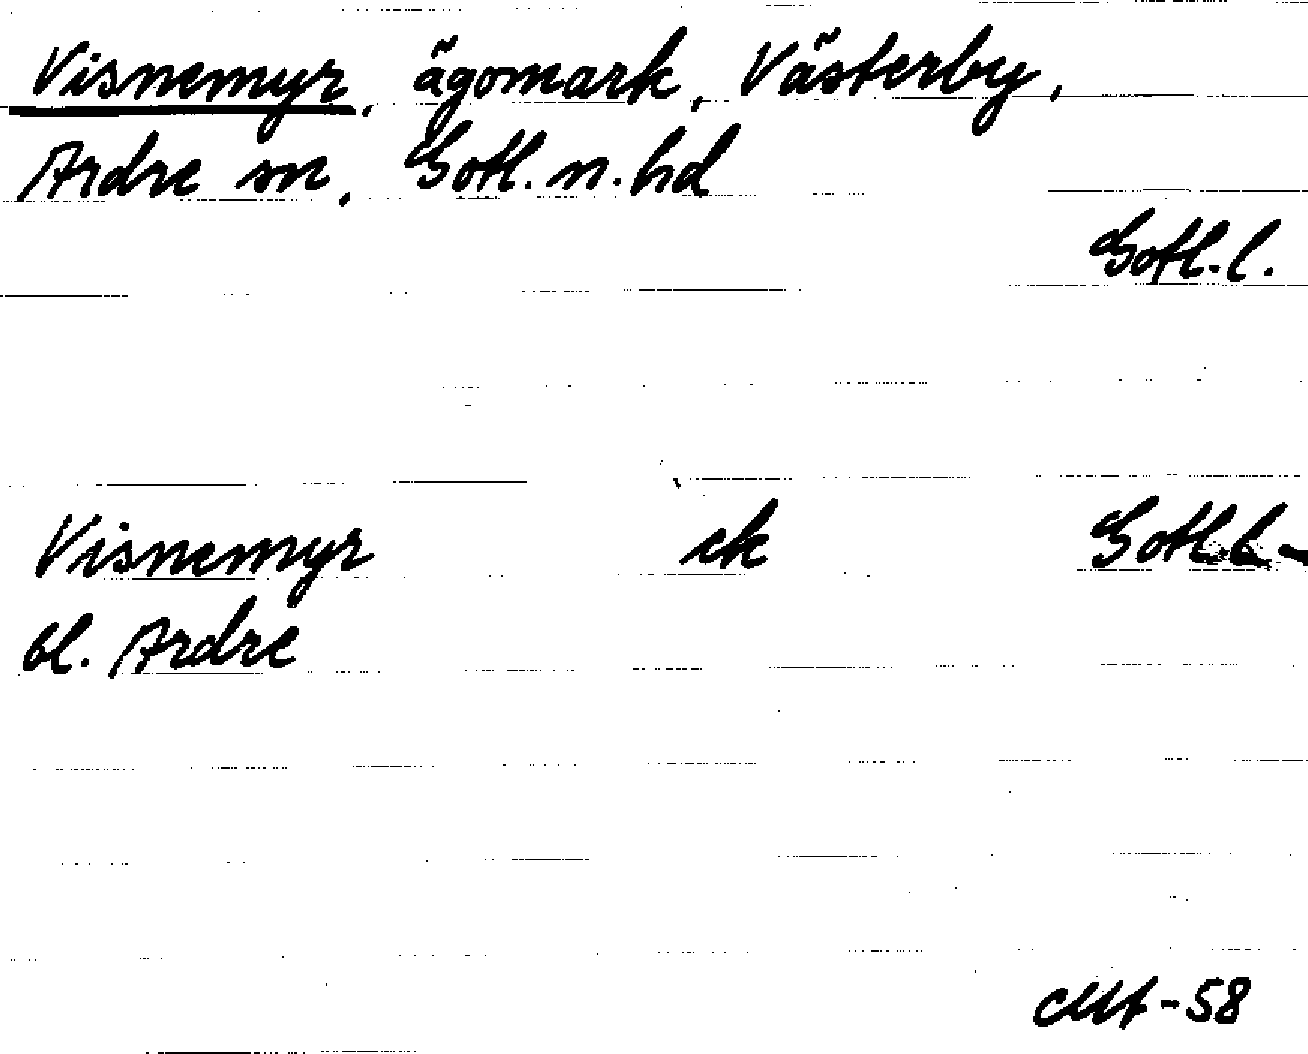 Visnemyr, ägomark, Västerby,
Ardre sn, Gotl. n. hd
Gotl. l.
Visnemyr ek Gotl. l.
bl. Ardre
-58